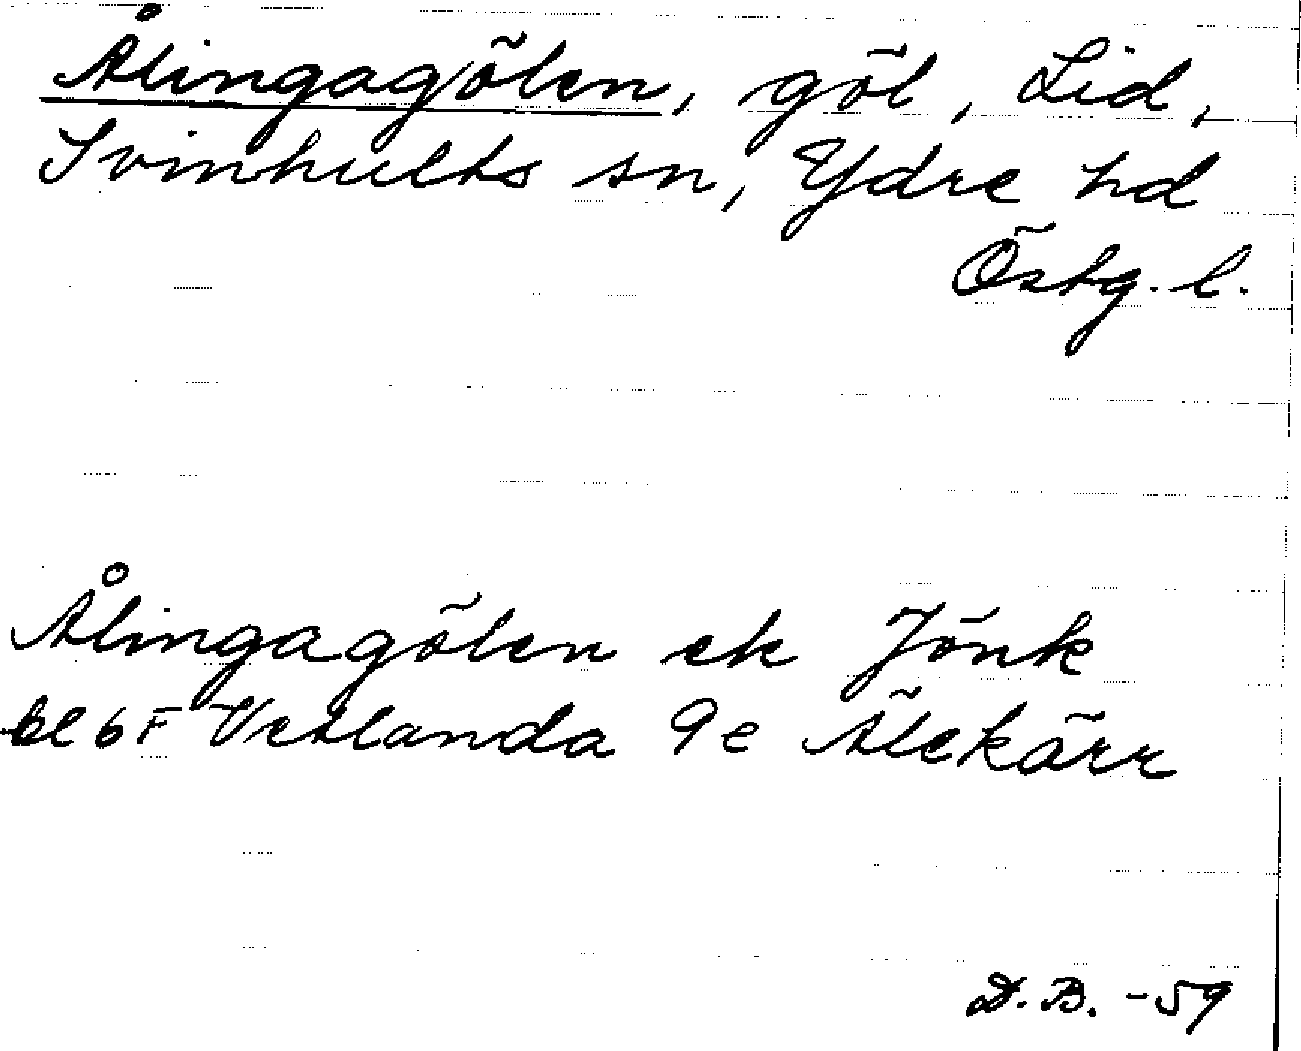 Ålingagölen, göl, Lid,
Svinhults sn, Ydre hd
Östg. l.
Ålingagölen ek Jönk
bl 6 F Vetlanda 9e Älekärr
D.B. -59